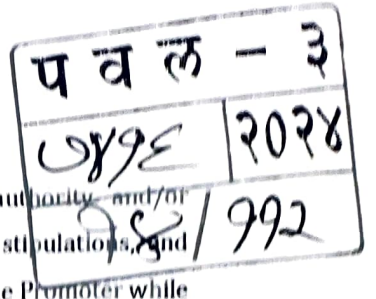 प व ल - ३
७४१६ | २०२४
uthority and/or
stipulations, and / ११२
e Promoter while